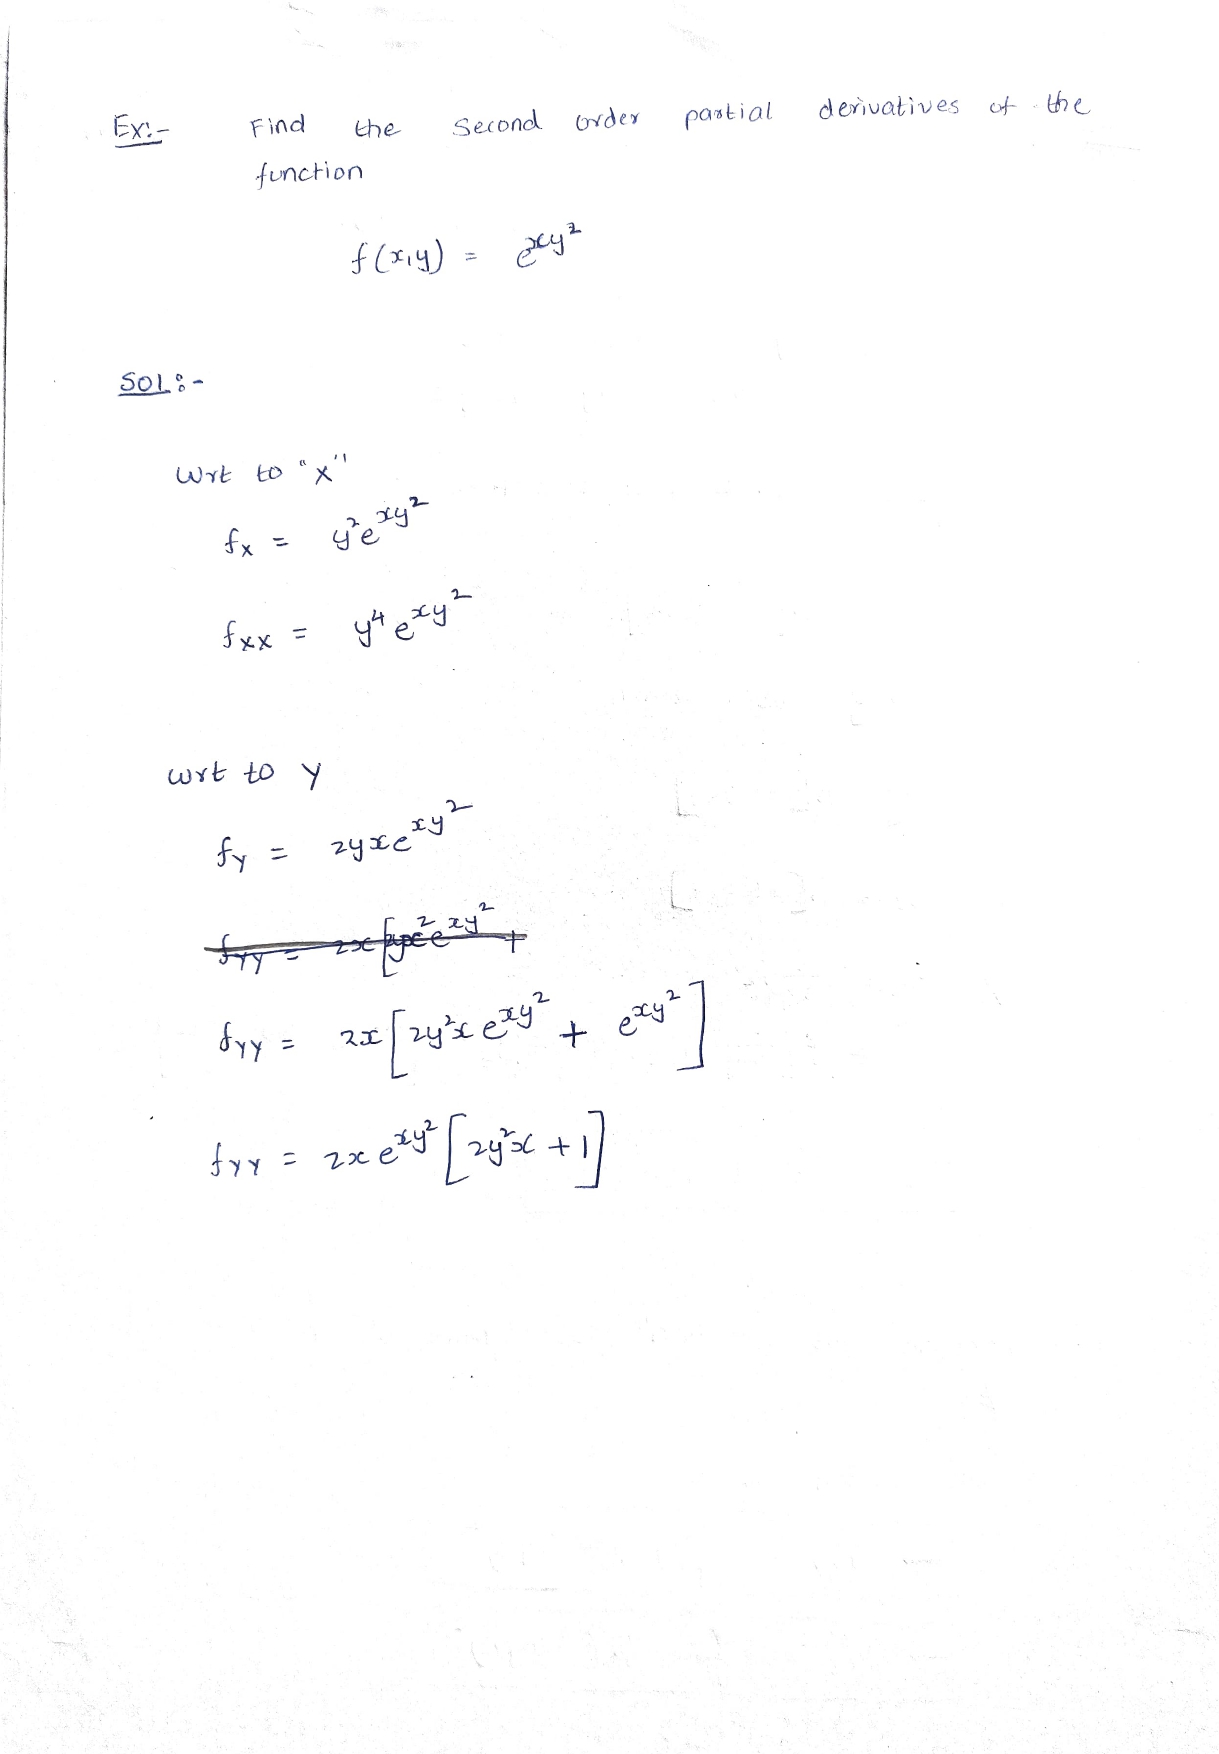 Ex:- Find the Second order partial derivatives of the
function
f(x,y) = e^{xy^2}
SOL:-
Wrt to "x"
fx = y^2 e^{xy^2}
fxx = y^4 e^{xy^2}
wrt to y
fy = 2yxe^{xy^2}
fyy = 2x[2y^2x e^{xy^2} + e^{xy^2}]
fyy = 2x e^{xy^2} [2y^2x + 1]